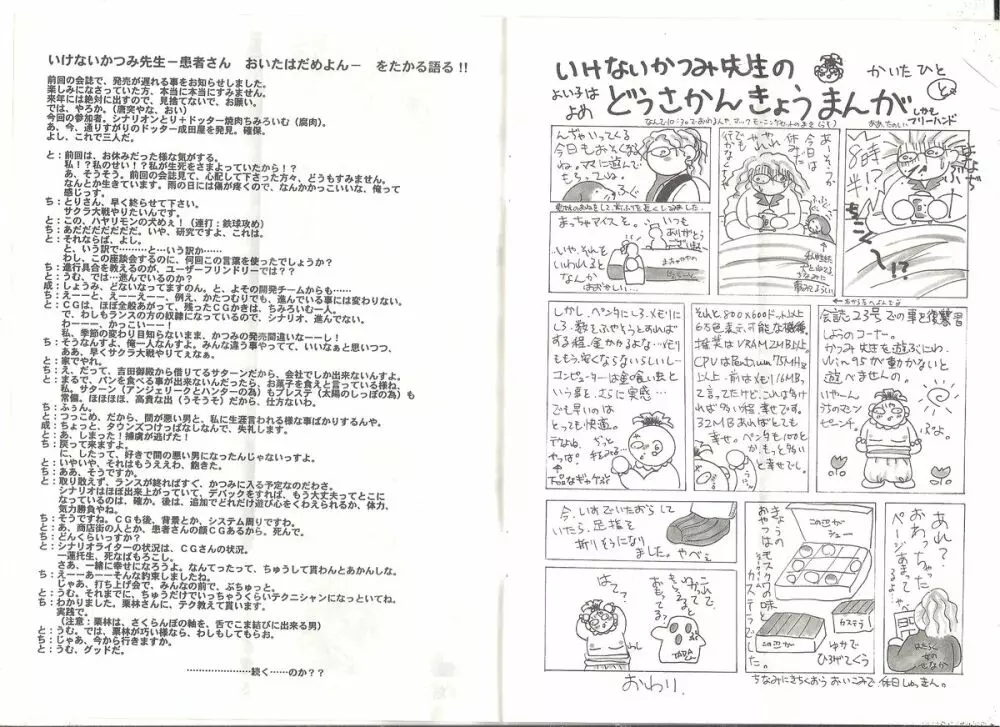 いけないかつみ先生－患者さん　おいたはだめよん－　をたかる語る!!
前回の会誌で、発売が遅れる事をお知らせしました。
楽しみになさっていた方、本当に本当にすみません。
来年には絶対に出すので、見捨てないで、お願い。
では、やろか。（唐突やな、おい）
今回の参加者。シナリオンとり＋ドッター焼肉ちみろいむ（腐肉）。
あ、今、通りすがりのドッター成田屋を発見。確保。
よし、これで三人だ。
と：前回は、お休みだった様な気がする。
私！？私のせい！？私が生死をさまよっていたから！？
あ、そうそう。前回の会誌見て、心配して下さった方々、どうもすみません。
なんとか生きています。雨の日には傷が疼くので、なんかかっこいいな、俺って
感じっす。
ち：とりさん、早く終らせて下さい。
サクラ大戦やりたいんです。
と：この、ハヤリモンの犬めぇ！（連打：鉄球攻め）
ち：あだだだだだだだ。いや、研究ですよ、これは。
と：それならば、よし。
と、いう訳で………と…いう訳か……
わし、この座談会で、何回この言葉を使ったでしょうか？
ち：進行具合を教えるのが、ユーザーフリンドリーでは？？
と：うむ、では…進んでいるのか？
成：しょうみ、どないなってますのん、と、よその開発チームからも……
ち：えーーと、えーーえーー、例え、かたつむりでも、進んでいる事には変わりない。
と：ＣＧは、ほぼ全般あがって、残ったＣＧかきは、ちみろいむ一人。
で、わしもランスの方の奴隷になっているので、シナリオ、進んでない。
わーーー、かっこいーー！
私、季節の変わり目知らないまま、かつみの発売間違いなーーし！
ち：そうなんすよ、俺一人なんすよ。みんな違う事やってて、いいなぁと思いつつ、
ああ、早くサクラ大戦やりてぇなぁ。
と：家でやれ。
ち：え、だって、吉田御殿から借りてるサターンだから、会社でしか出来ないんすよ。
と：まるで、パンを食べる事が出来ないんだったら、お菓子を食えと言っている様ね、
私。サターン（アンジェリークとハンターの為）もプレステ（太陽のしっぽの為）も
常備。ほほほほ、高貴な出（うそうそ）だから、仕方ないわ。
ち：ふぅん。
と：つっこめ、だから、間が悪い男と、私に生涯言われる様な事ばかりするんや。
成：ちょっと、タウンズつけっぱなしなんで、失礼します。
と：あ、しまった！捕虜が逃げた！
ち：戻って来ますよ。
に、したって、好きで間の悪い男になったんじゃないっすよ。
と：いやいや、それはもうええわ、飽きた。
ち：ああ、そうですか。
と：取り敢えず、ランスが終ればすぐ、かつみに入る予定なのだわさ。
シナリオはほぼ出来上がっていて、デバックをすれば、もう大丈夫ってとこに
なっているのは、確か。後は、追加でどれだけ遊び心をくわえられるか、体力、
気力勝負やね。
ち：そうですね。ＣＧも後、背景とか、システム周りですわ。
と：あ、商店街の人とか、患者さんの顔ＣＧあるから、死んで。
ち：どんくらいっすか？
と：シナリオライターの状況は、ＣＧさんの状況。
一蓮托生、死なばもろこし。
さあ、一緒に幸せになろうよ。なんてったって、ちゅうして貰わんとあかんしな。
ち：えーーあーーそんな約束しましたね。
じゃあ、打ち上げ会で、みんなの前で、ぶちゅっと。
と：うむ。それまでに、ちゅうだけでいっちゃうくらいテクニシャンになっといてね。
ち：わかりました。栗林さんに、テク教えて貰います。
実践で。
（注意：栗林は、さくらんぼの軸を、舌でこま結びに出来る男）
と：うむ。では、栗林が巧い様なら、わしもしてもらお。
ち：じゃあ、今から行きますか。
と：うむ、グッドだ。
…………………続く……のか？？
いけないかつみ先生の
かいたひと
と
よい子は
よめ
どうさかんきょうまんが
しかも
フリーハンド
あーそうか
今日は
休みだ
8時
半!?
んぢゃいってくる
今日もおそくなる
ね。ママに遊んで
もらってね。
まっちゃアイスを。
いつも
ありがとう
ござい
いや、それを
いわれると
なんか
はずかしい…
会誌23号での事を復習
しようのコーナー。
かつみ先生を遊ぶにわ、
Win95が動かないと
遊べませんの。
いやーん
うちのマシン
ピーンチ。
それと800×600ドット以上
6万色表示可能な機種
推奨はVRAM2MB以上。
CPUはPentium75MHz
以上。前はメモリ16MB、
って言ってたけど、これは多け
れば多い程、幸せです。
32MBあればとても
幸せ。ペンタも100と
か、もっと多い
と幸せでし。
しかし、ペンタにしろ、メモリに
しろ、数をふやそうとおもえば
する程、金かかるよな…メモリ
ももう、安くならないらしいし
コンピューターは金の喰い虫と
いう事を、さらに実感…
でも早いのは
とっても快適。
あれ？
おわっちゃった
ページあまってる
やべ
きゃつは
モスクワの味
カステーラでした。
この辺が
シュー
カステラ
この辺が
ゆかで
ひろげてくう
今、いすでいたおらして
いたら、足指を
折りそうに
なりました。やべぇ
はて？
おもう？
TADA
くん
おわり。
ちなみにきちくおう おいこみで、休日しゅっきん。